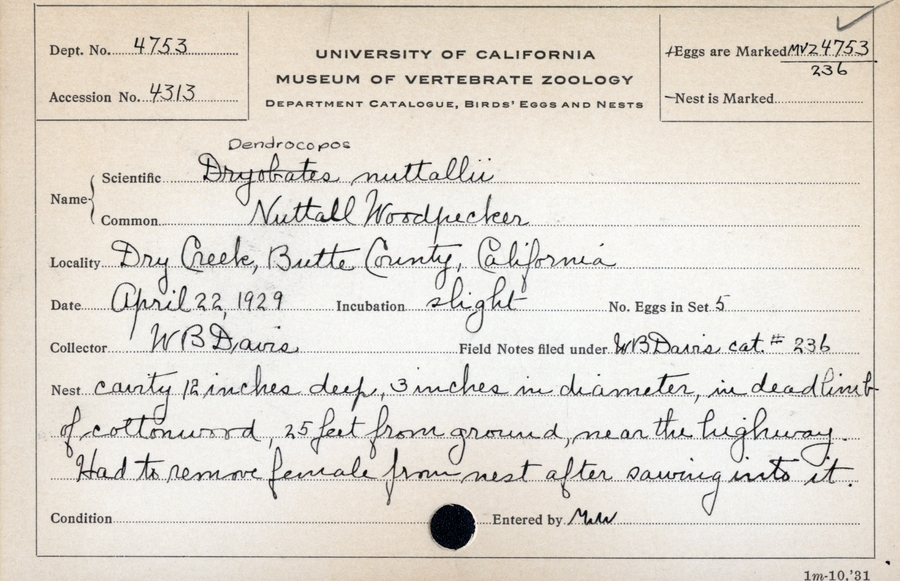 Dept. No. 4753
Accession No. 4313
UNIVERSITY OF CALIFORNIA
MUSEUM OF VERTEBRATE ZOOLOGY
DEPARTMENT CATALOGUE, BIRDS' EGGS AND NESTS
+Eggs are Marked MVZ 4753
236
—Nest is Marked
Dendrocopos
Name { Scientific Dryobates nuttallii
Common Nuttall Woodpecker
Locality Dry Creek, Butte County, California
Date April 22, 1929 Incubation slight No. Eggs in Set 5
Collector W B Davis Field Notes filed under WB Davis cat. # 236
Nest cavity 12 inches deep, 3 inches in diameter, in dead limb
of cottonwood, 25 feet from ground, near the highway.
Had to remove female from nest after sawing into it.
Condition Entered by
1m-10,'31